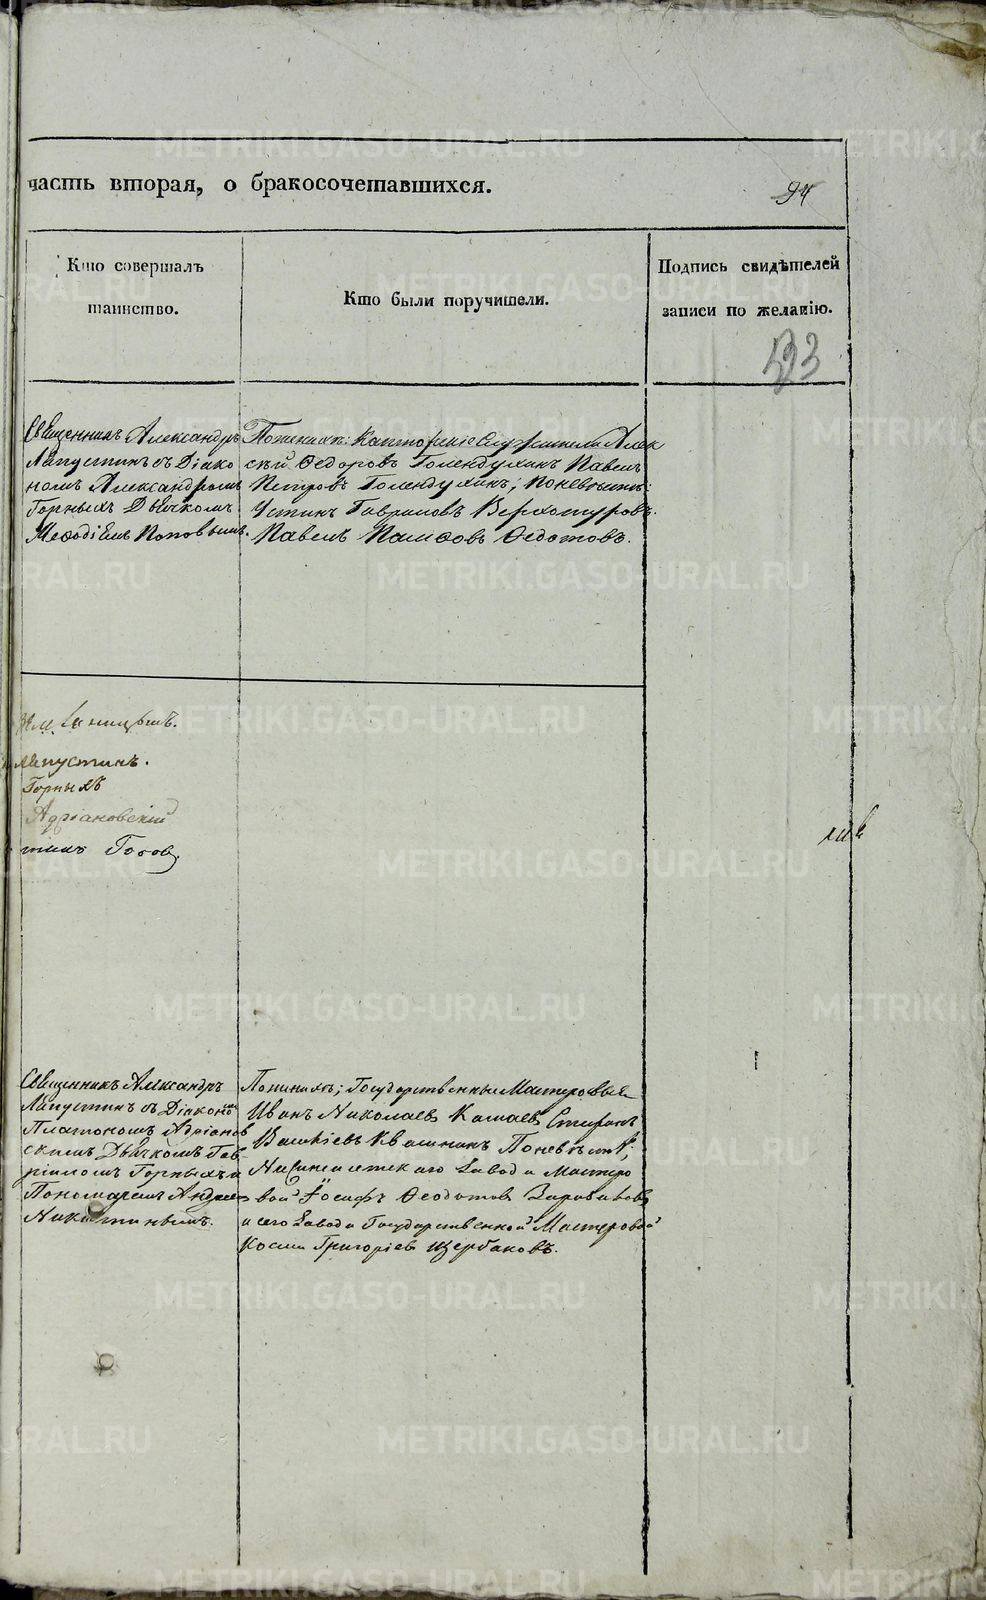 часть вторая, о бракосочетавшихся.
94
Кто совершалъ
таинство.
Кто были поручители.
Подпись свидѣтелей
записи по желанію.
533
Священникъ Александръ
Лапустинъ съ Діако
номъ Александромъ
Горныхъ Дьячкомъ
Меѳодіемъ Поповымъ.
По женихѣ: Конторскіе Служители Алек
сѣй Ѳедоровъ Голендухинъ Павелъ
Петровъ Голендухинъ, по невѣстѣ:
Устинъ Гавриловъ Верхотуровъ.
Павелъ Ѳедотовъ.
Лапустинъ.
Горныхъ
Адріановскій
Священникъ Александръ
Лапустинъ съ Діакономъ
Платономъ Адріанов
скимъ Дьячкомъ Гав
ріиломъ Горныхъ и
Пономаремъ Андреемъ
Никитинымъ.
По женихѣ; Государственные Мастеровые
Иванъ Николаевъ Стефанъ
Квашнинъ По невѣстѣ;
Завода Мастеро
вой Іосифъ Ѳеодотовъ
и сего Завода Государственной Мастеровой
Косма Григоріевъ Щербаковъ.
METRIKI.GASO-URAL.RU